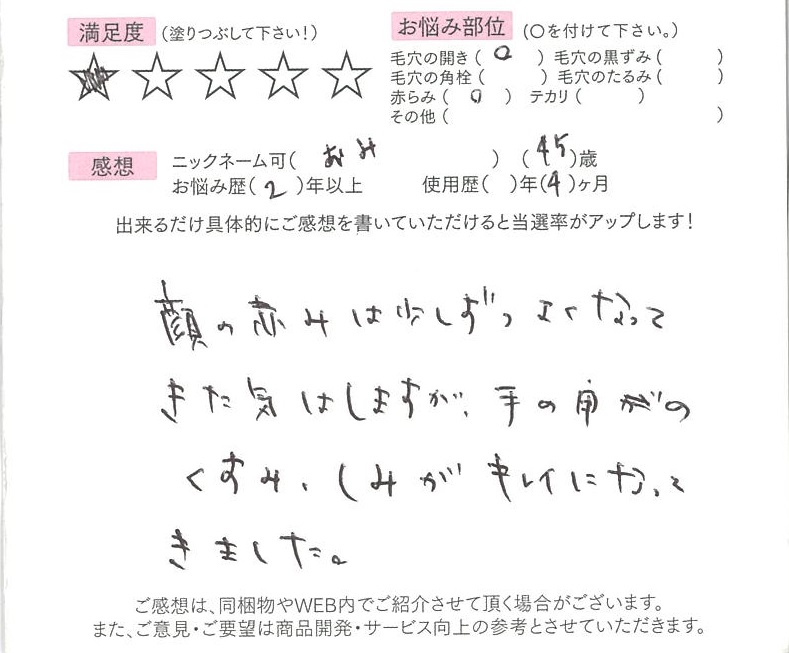 満足度 (塗りつぶして下さい!)
お悩み部位 (〇を付けて下さい。)
毛穴の開き( 〇 ) 毛穴の黒ずみ( )
毛穴の角栓( ) 毛穴のたるみ( )
赤らみ( 〇 ) テカリ( )
その他( )
感想 ニックネーム可( おみ ) (45)歳
お悩み歴(2)年以上 使用歴( )年(4)ヶ月
出来るだけ具体的にご感想を書いていただけると当選率がアップします!
顔の赤みは少しずつよくなって
きた気はしますが、手の甲の
くすみ、しみがキレイになって
きました。
ご感想は、同梱物やWEB内でご紹介させて頂く場合がございます。
また、ご意見・ご要望は商品開発・サービス向上の参考とさせていただきます。